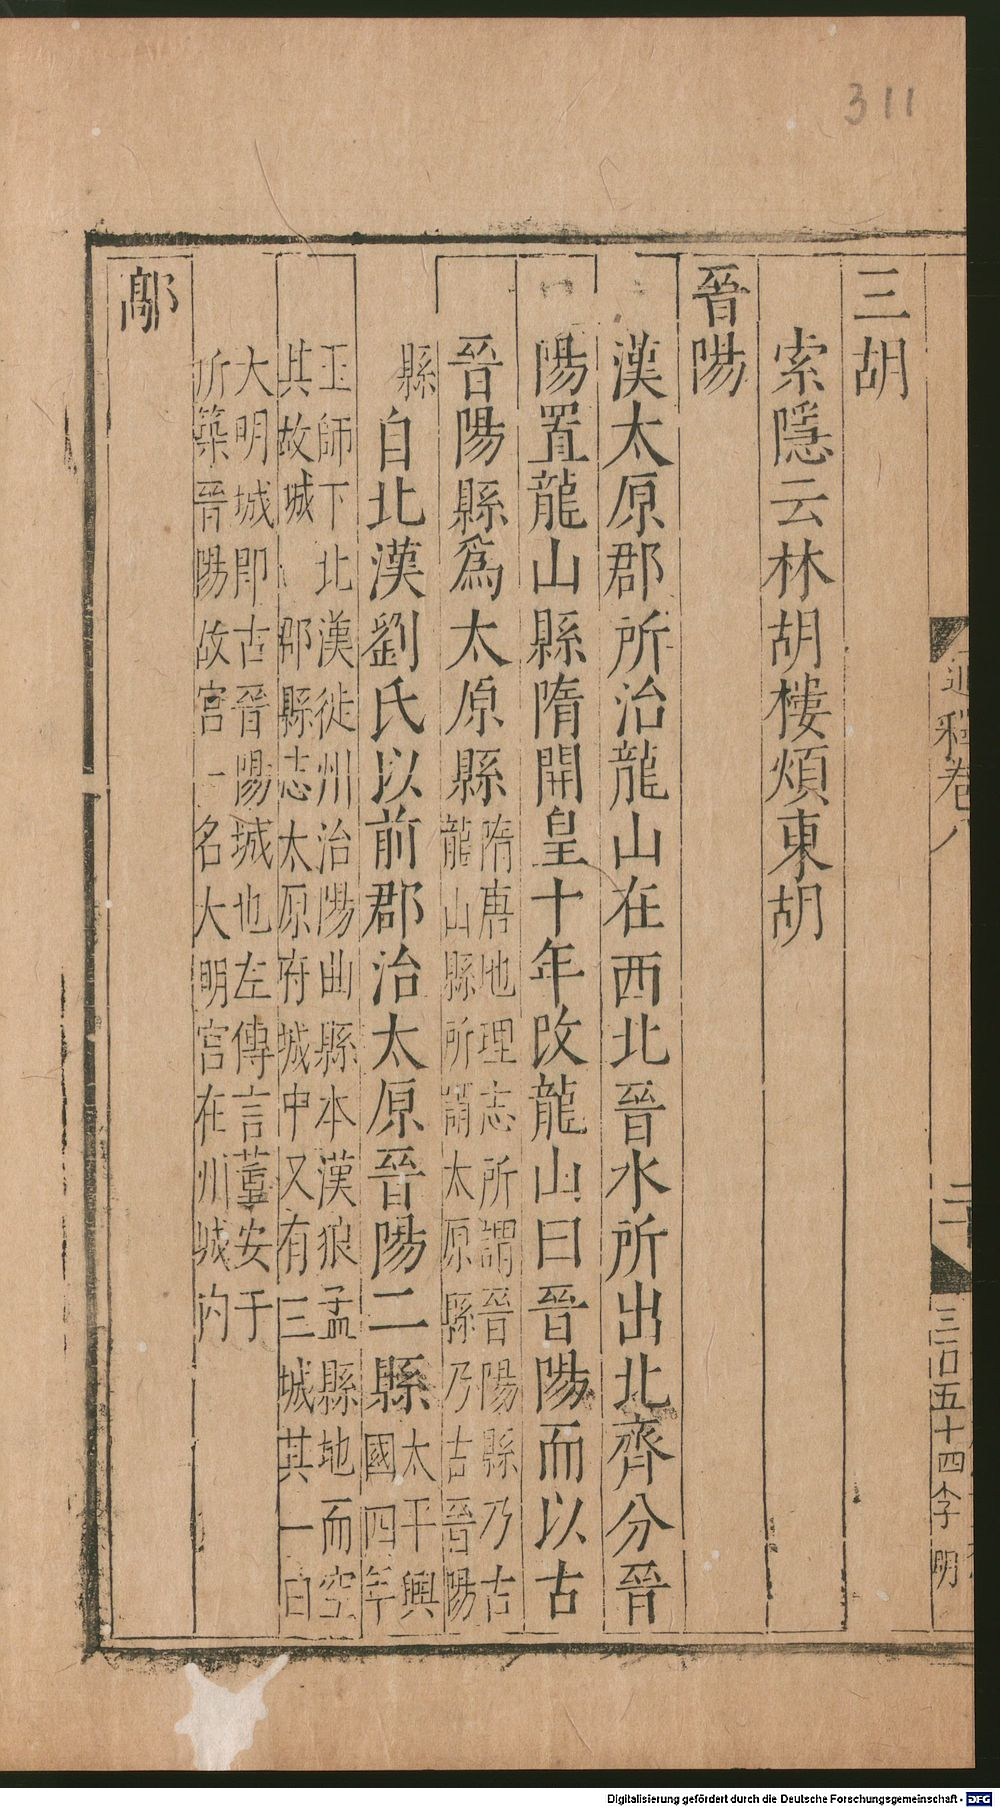 311
三胡
索隱云林胡樓煩東胡
晉陽
漢太原郡所治龍山在西北晉水所出北齊分晉
陽置龍山縣隋開皇十年改龍山曰晉陽而以古
晉陽縣爲太原縣
隋唐地理志所謂晉陽縣乃古
龍山縣所謂太原縣乃古晉陽
縣
自北漢劉氏以前郡治太原晉陽二縣
太平興
國四年
王師下北漢徙州治陽曲縣本漢狼孟縣地而空
其故城 郡縣志太原府城中又有三城其一曰
大明城即古晉陽城也左傳言董安于
所築晉陽故宮一名大明宮在州城內
鄗
通釋卷八
三百五十四李明
Digitalisierung gefördert durch die Deutsche Forschungsgemeinschaft - DFG